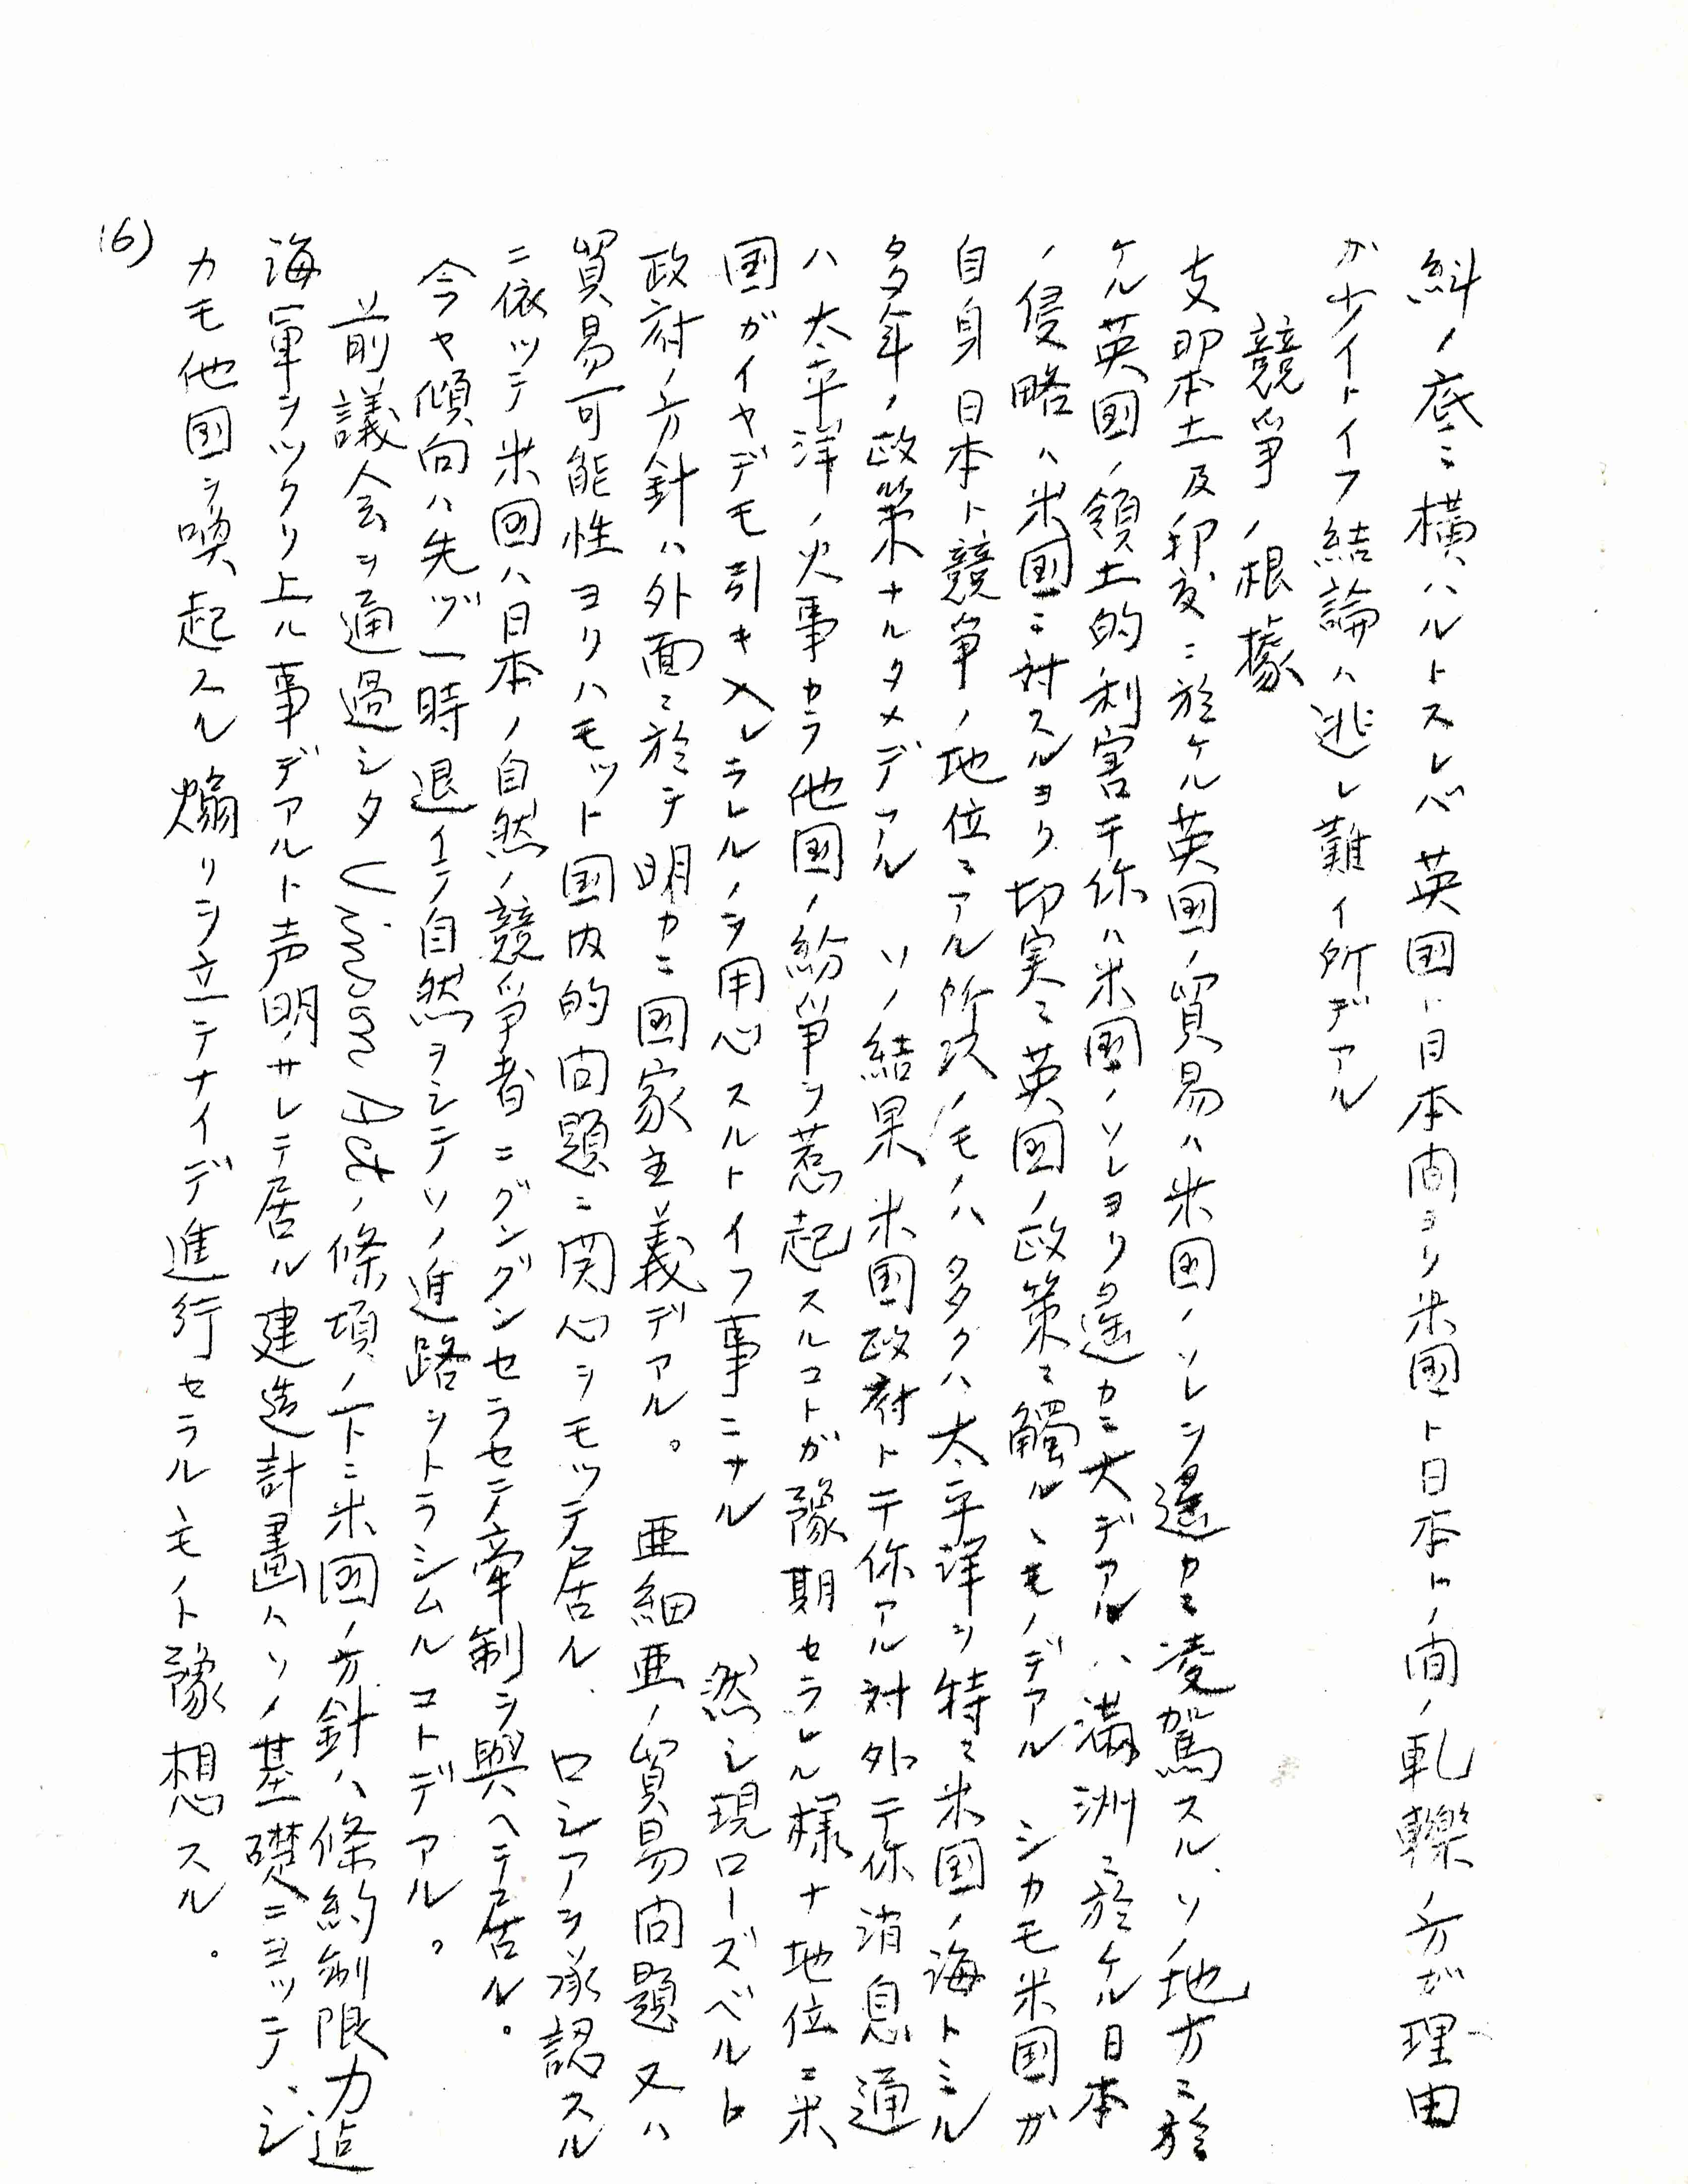 糾ノ底ニ横ハルトスレバ英国ト日本間ヨリ米国ト日本トノ間ノ軋轢ノ方ガ理由
ガ少イトイフ結論ハ逃レ難イ所デアル
競爭ノ根據
支那本土及印度ニ於ケル英国ノ貿易ハ米国ノソレヲ遙カニ凌駕スル、ソノ地方ニ於
ケル英国ノ領土的利害干係ハ米国ノソレヨリ遙カニ大デアル 満洲ニ於ケル日本
ノ侵略ハ米国ニ対スルヨリ切実ニ英国ノ政策ニ觸ルヽモノデアル シカモ米国ガ
自身日本ト競争ノ地位ニアル所以ノモノハ多クハ太平洋ヲ特ニ米国ノ海トミル
多年ノ政策ナルタメデアル ソノ結果米国政府ト干係アル対外干係消息通
ハ太平洋ノ火事カラ他国ノ紛爭ヲ惹起スルコトガ豫期セラレル様ナ地位ニ米
国ガイヤデモ引キ入レラレルノヲ用心スルトイフ事ニナル 然シ現ローズベルト
政府ノ方針ハ外面ニ於テ明カニ国家主義デアル。 亜細亜ノ貿易問題又ハ
貿易可能性ヨリハモット国内的問題ニ関心ヲモッテ居ル、ロシアヲ承認スル
ニ依ッテ米国ハ日本ノ自然ノ競爭者ニグングンセラセテ牽制ヲ與ヘテ居ル。
今ヤ傾向ハ先ヅ一時退イテ自然ヲシテソノ進路ヲトラシムルコトデアル。
前議会ヲ通過シタVinson Actノ條項ノ下ニ米国ノ方針ハ條約制限力迄
海軍ヲツクリ上ル事デアルト声明サレテ居ル建造計畫ハソノ基礎ニヨッテ、シ
カモ他国ヲ喚起スル煽リヲ立テナイデ進行セラルモノト豫想スル。
(6)